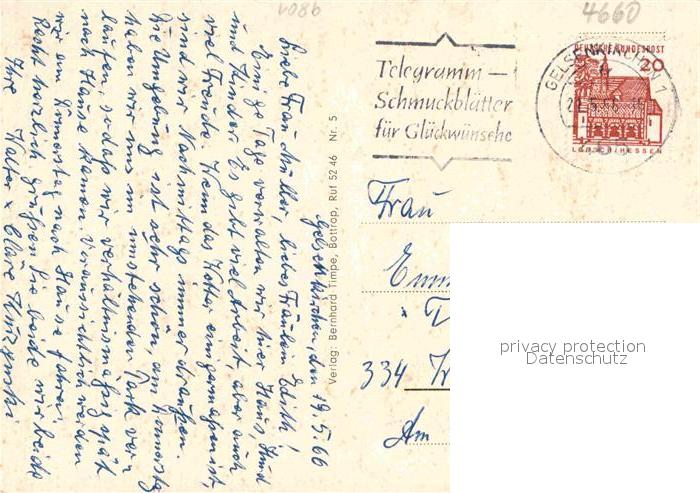 v086
4660
Telegramm —
Schmuckblätter
für Glückwünsche
GELSENKIRCHEN 1
DEUTSCHE BUNDESPOST
20
LORSCH/HESSEN
Gelsenkirchen, den 19.5.66
Liebe Frau Müller, liebes Fräulein Edith,
Einige Tage verwalten wir hier Haus, Hund
und Kinder. Es gibt viel Arbeit, aber auch
viel Freude. Wenn das Wetter einigermaßen ist,
sind wir Nachmittags immer draußen.
Die Umgebung ist sehr schön, am Donnerstg
haben wir uns im umstehenden Park ver-
laufen, sodaß wir verhältnismäßig spät
nach Hause kamen. Voraussichtlich werden
wir am Sonntag nach Hause fahren.
Recht herzlich grüßen Sie beide wir beide
Ihre Walter &
Verlag: Bernhard Timpe, Bottrop, Ruf 52 46 Nr. 5
Frau
334
Am
privacy protection
Datenschutz